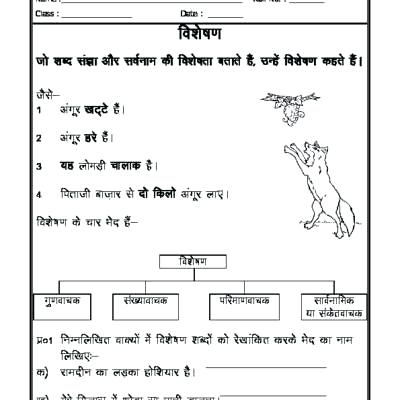 Class : Date :
विशेषण
जो शब्द संज्ञा और सर्वनाम की विशेषता बताते हैं, उन्हें विशेषण कहते हैं।
जैसे–
1 अंगूर खट्टे हैं।
2 अंगूर हरे हैं।
3 यह लोमड़ी चालाक है।
4 पिताजी बाज़ार से दो किलो अंगूर लाए।
विशेषण के चार भेद हैं–
विशेषण
गुणवाचक संख्यावाचक परिमाणवाचक सार्वनामिक
या संकेतवाचक
प्र०1 निम्नलिखित वाक्यों में विशेषण शब्दों को रेखांकित करके भेद का नाम
लिखिए:–
क) रामदीन का लड़का होशियार है।